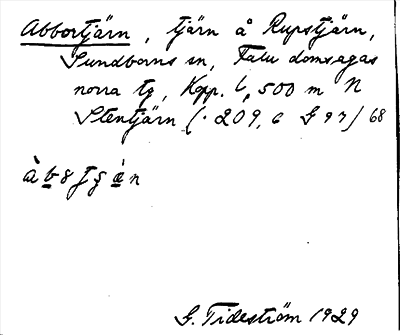 Abbortjärn, tjärn å Rupstjärn,
Sundborns sn, Falu domsagas
norra tg, Kopp. l, 500 m N
Stentjärn (· 209,6 G 97) 68
G. Tideström 1929